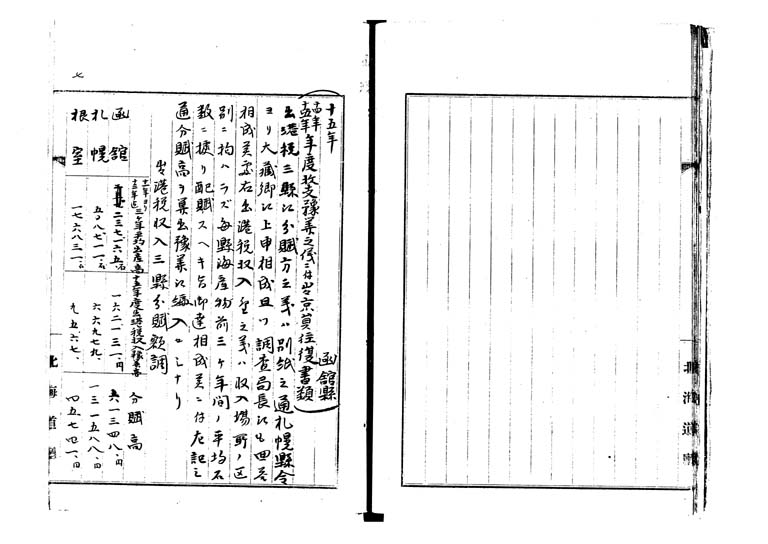 十五年
十四年
十五年年度收支豫算之儀ニ付出京員往復書類
函舘縣
出港税三縣ヱ分賦方之義ハ別紙之通札幌縣令
ヨリ大藏卿ヱ上申相成且ツ調査局長ヱも回答
相成候處右出港税収入金之義ハ収入場所ノ区
別ニ拘ハラズ毎縣海産物前三ヶ年間ノ平均石
数ニ據リ配賦スヘキ旨御達相成候ニ付左記之
通分賦高ヲ算出豫算ヱ編入セシナリ
出港税収入三縣分賦額調
十二年ヨリ
十四年迄三ヶ年平均出産高
十五年度出港税収入豫算高
分賦高
函舘
二三七一六五石
一六二一三一円
六一三四八円
札幌
五〇八七一一石
六六九七九
一三一五八八円
根室
一七六八三一石
九五六七
四五七四一円
北海道
七